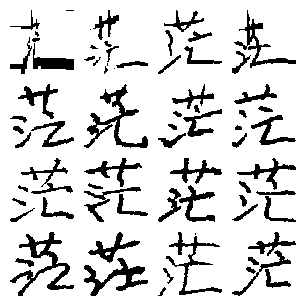 茫茫茫茫
茫茫茫茫
茫茫茫茫
茫茫茫茫